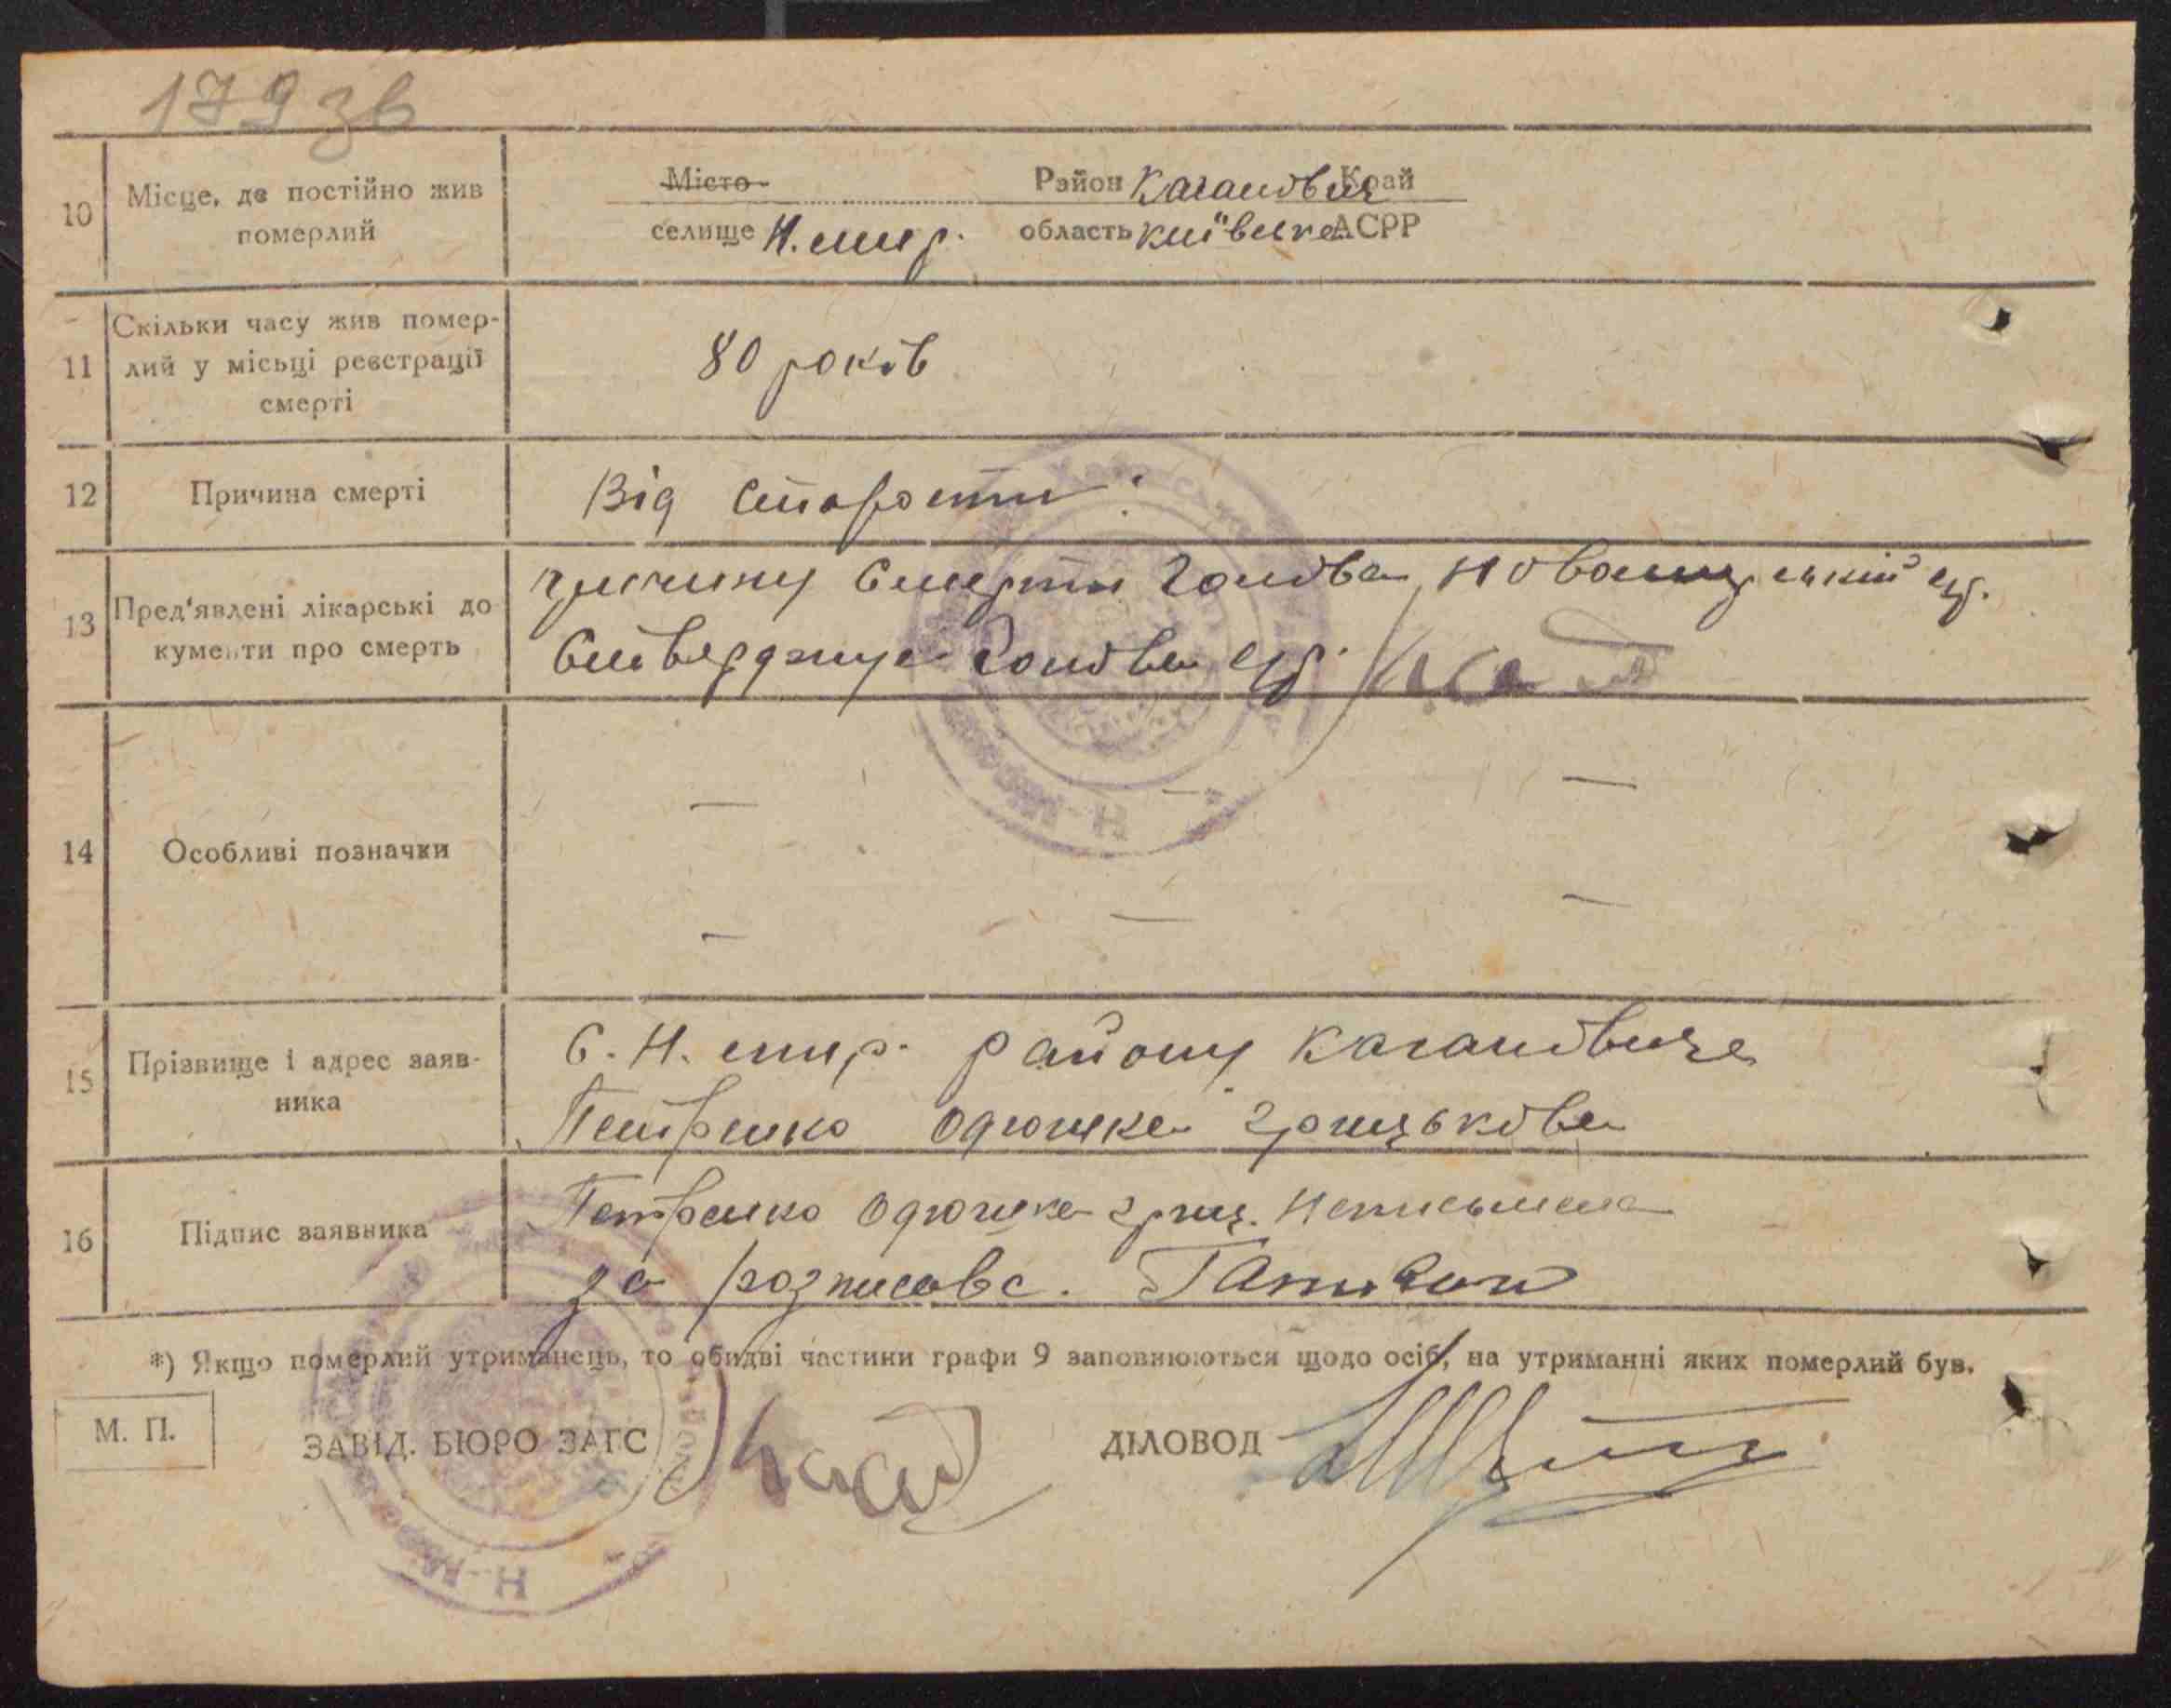 179 зв
10 Місце, де постійно жив померлий
Місто Район Каганович Край
селище Н. мир. область київска АСРР
11 Скільки часу жив помер-
лий у місьці реєстрації
смерті
80 років
12 Причина смерті
Від старости
13 Пред'явлені лікарські до
кументи про смерть
причину смерти голова
Стверджує голова с/р.
14 Особливі позначки
— —
— — —
15 Прізвище і адрес заяв-
ника
с. Н. мир. району Кагановича
Петренко Одюшка грицькова
16 Підпис заявника
Петренко Одюшка гриц. Неписьмена
за розписавс.
*) Якщо померлий утриманець, то обидві частини графи 9 заповнюються щодо осіб, на утриманні яких померлий був.
М. П.
ЗАВІД. БЮРО ЗАГС
ДІЛОВОД